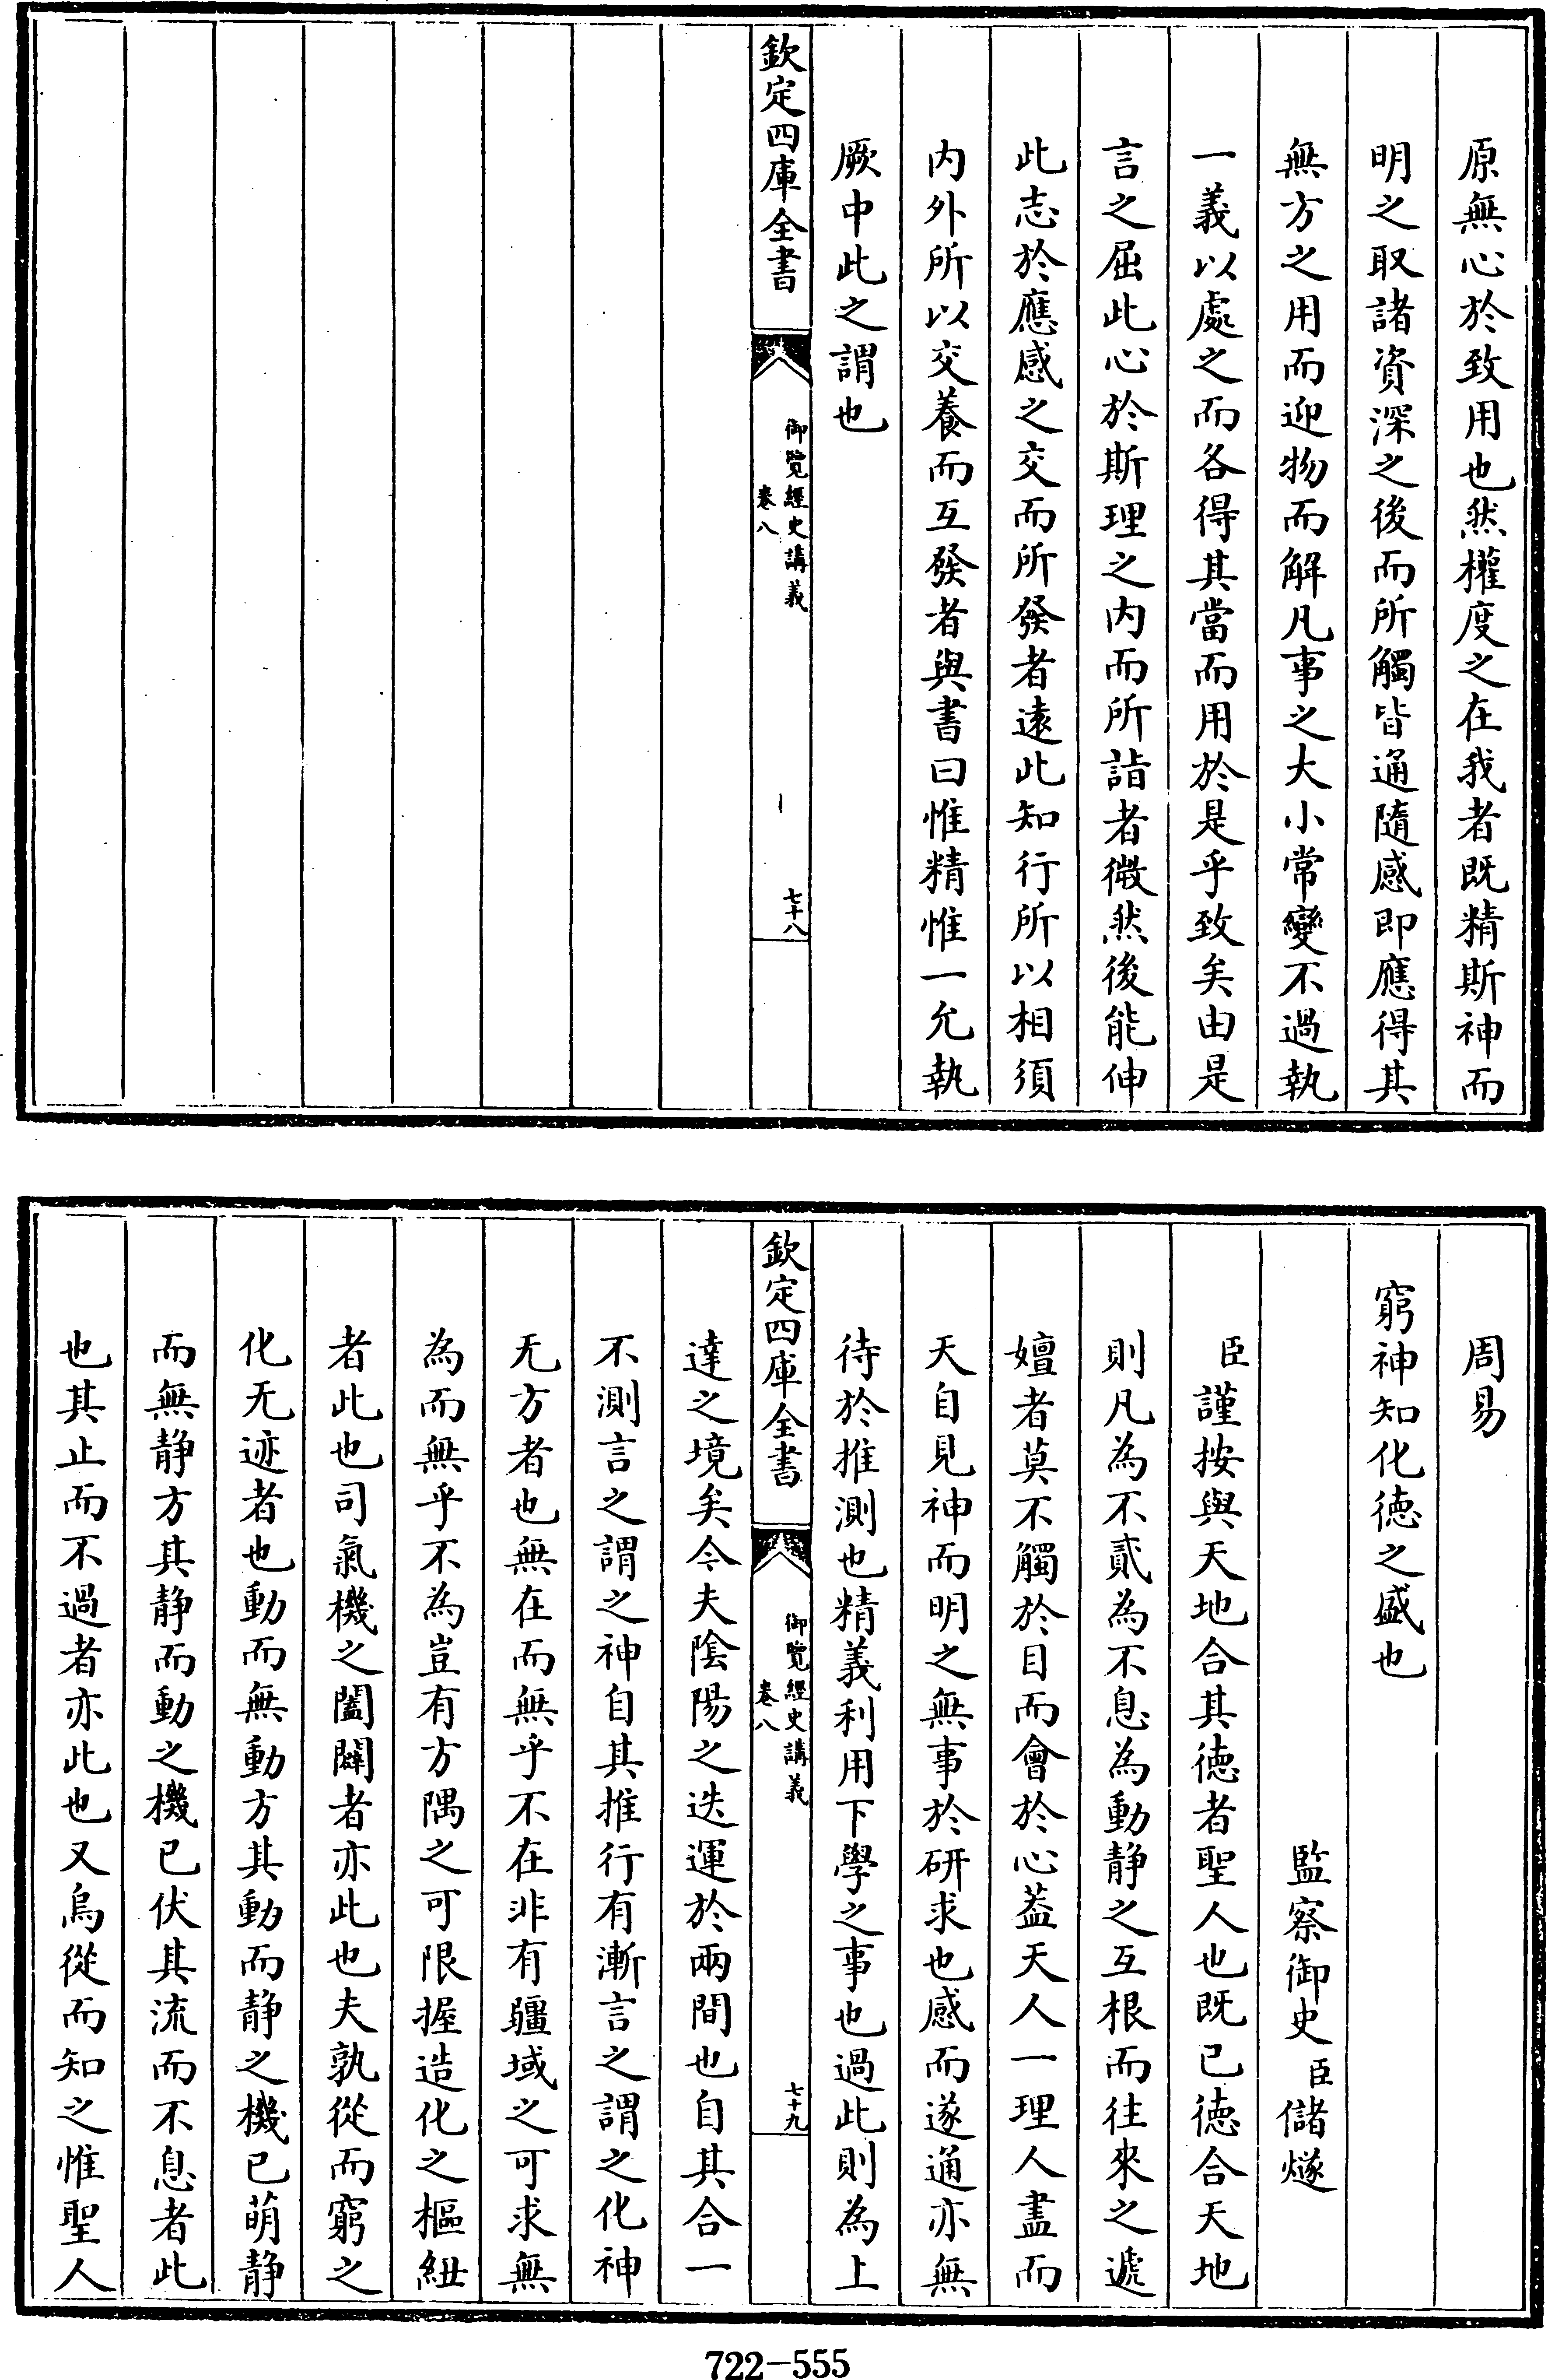 原無心於致用也然權度之在我者既精斯神而
明之取諸資深之後而所觸皆通隨感即應得其
無方之用而迎物而解凡事之大小常變不過執
一義以處之而各得其當而用於是乎致矣由是
言之屈此心於斯理之内而所詣者微然後能伸
此志於應感之交而所發者遠此知行所以相須
内外所以交養而互發者與書曰惟精惟一允執
厥中此之謂也
欽定四庫全書
御覽經史講義
卷八
七十八
周易
窮神知化德之盛也
監察御史臣儲燧
臣謹按與天地合其德者聖人也既已德合天地
則凡為不貳為不息為動静之互根而往來之遞
嬗者莫不觸於目而會於心葢天人一理人盡而
天自見神而明之無事於研求也感而遂通亦無
待於推測也精義利用下學之事也過此則為上
欽定四庫全書
御覽經史講義
卷八
七十九
達之境矣今夫陰陽之迭運於兩間也自其合一
不測言之謂之神自其推行有漸言之謂之化神
无方者也無在而無乎不在非有疆域之可求無
為而無乎不為豈有方隅之可限握造化之樞紐
者此也司氣機之闔闢者亦此也夫孰從而窮之
化无迹者也動而無動方其動而静之機已萌静
而無静方其静而動之機已伏其流而不息者此
也其止而不過者亦此也又烏從而知之惟聖人
722-555